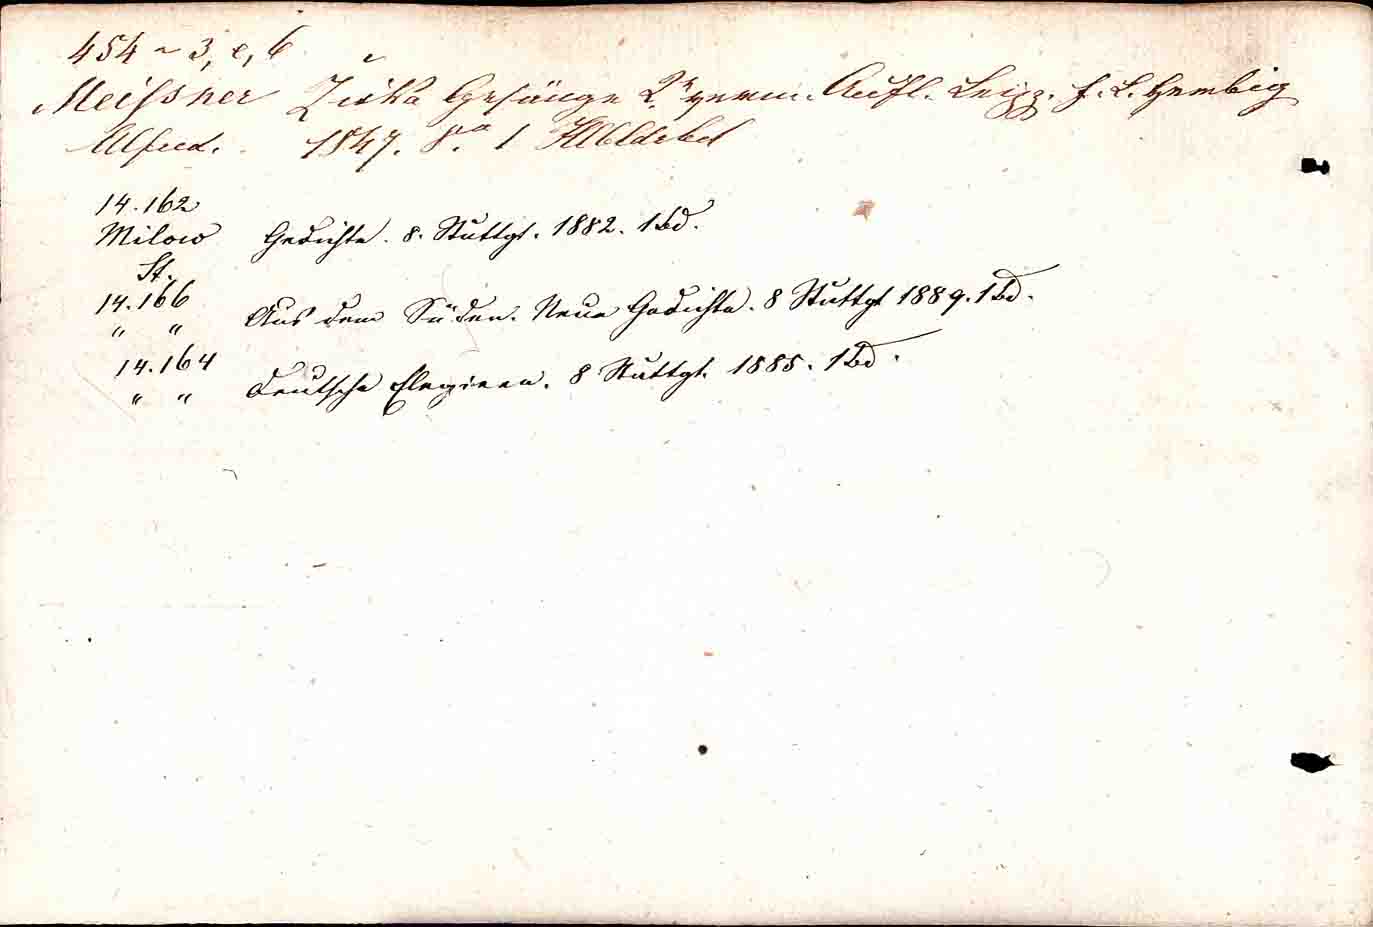 454 ~ 3, e, 6
Meissner Žiska Gesänge 2te verm. Aufl. Leipz. F. L. Herbig
Alfred. 1847. 8.° 1 Hlbldrbd
14.162
Milow Gedichte. 8. Stuttgt. 1882. 1 Bd.
St.
14.166 Aus dem Süden. Neue Gedichte. 8 Stuttgt 1889. 1 Bd.
" "
14.164 Deutsche Elegieen. 8 Stuttgt. 1885. 1 Bd.
" "